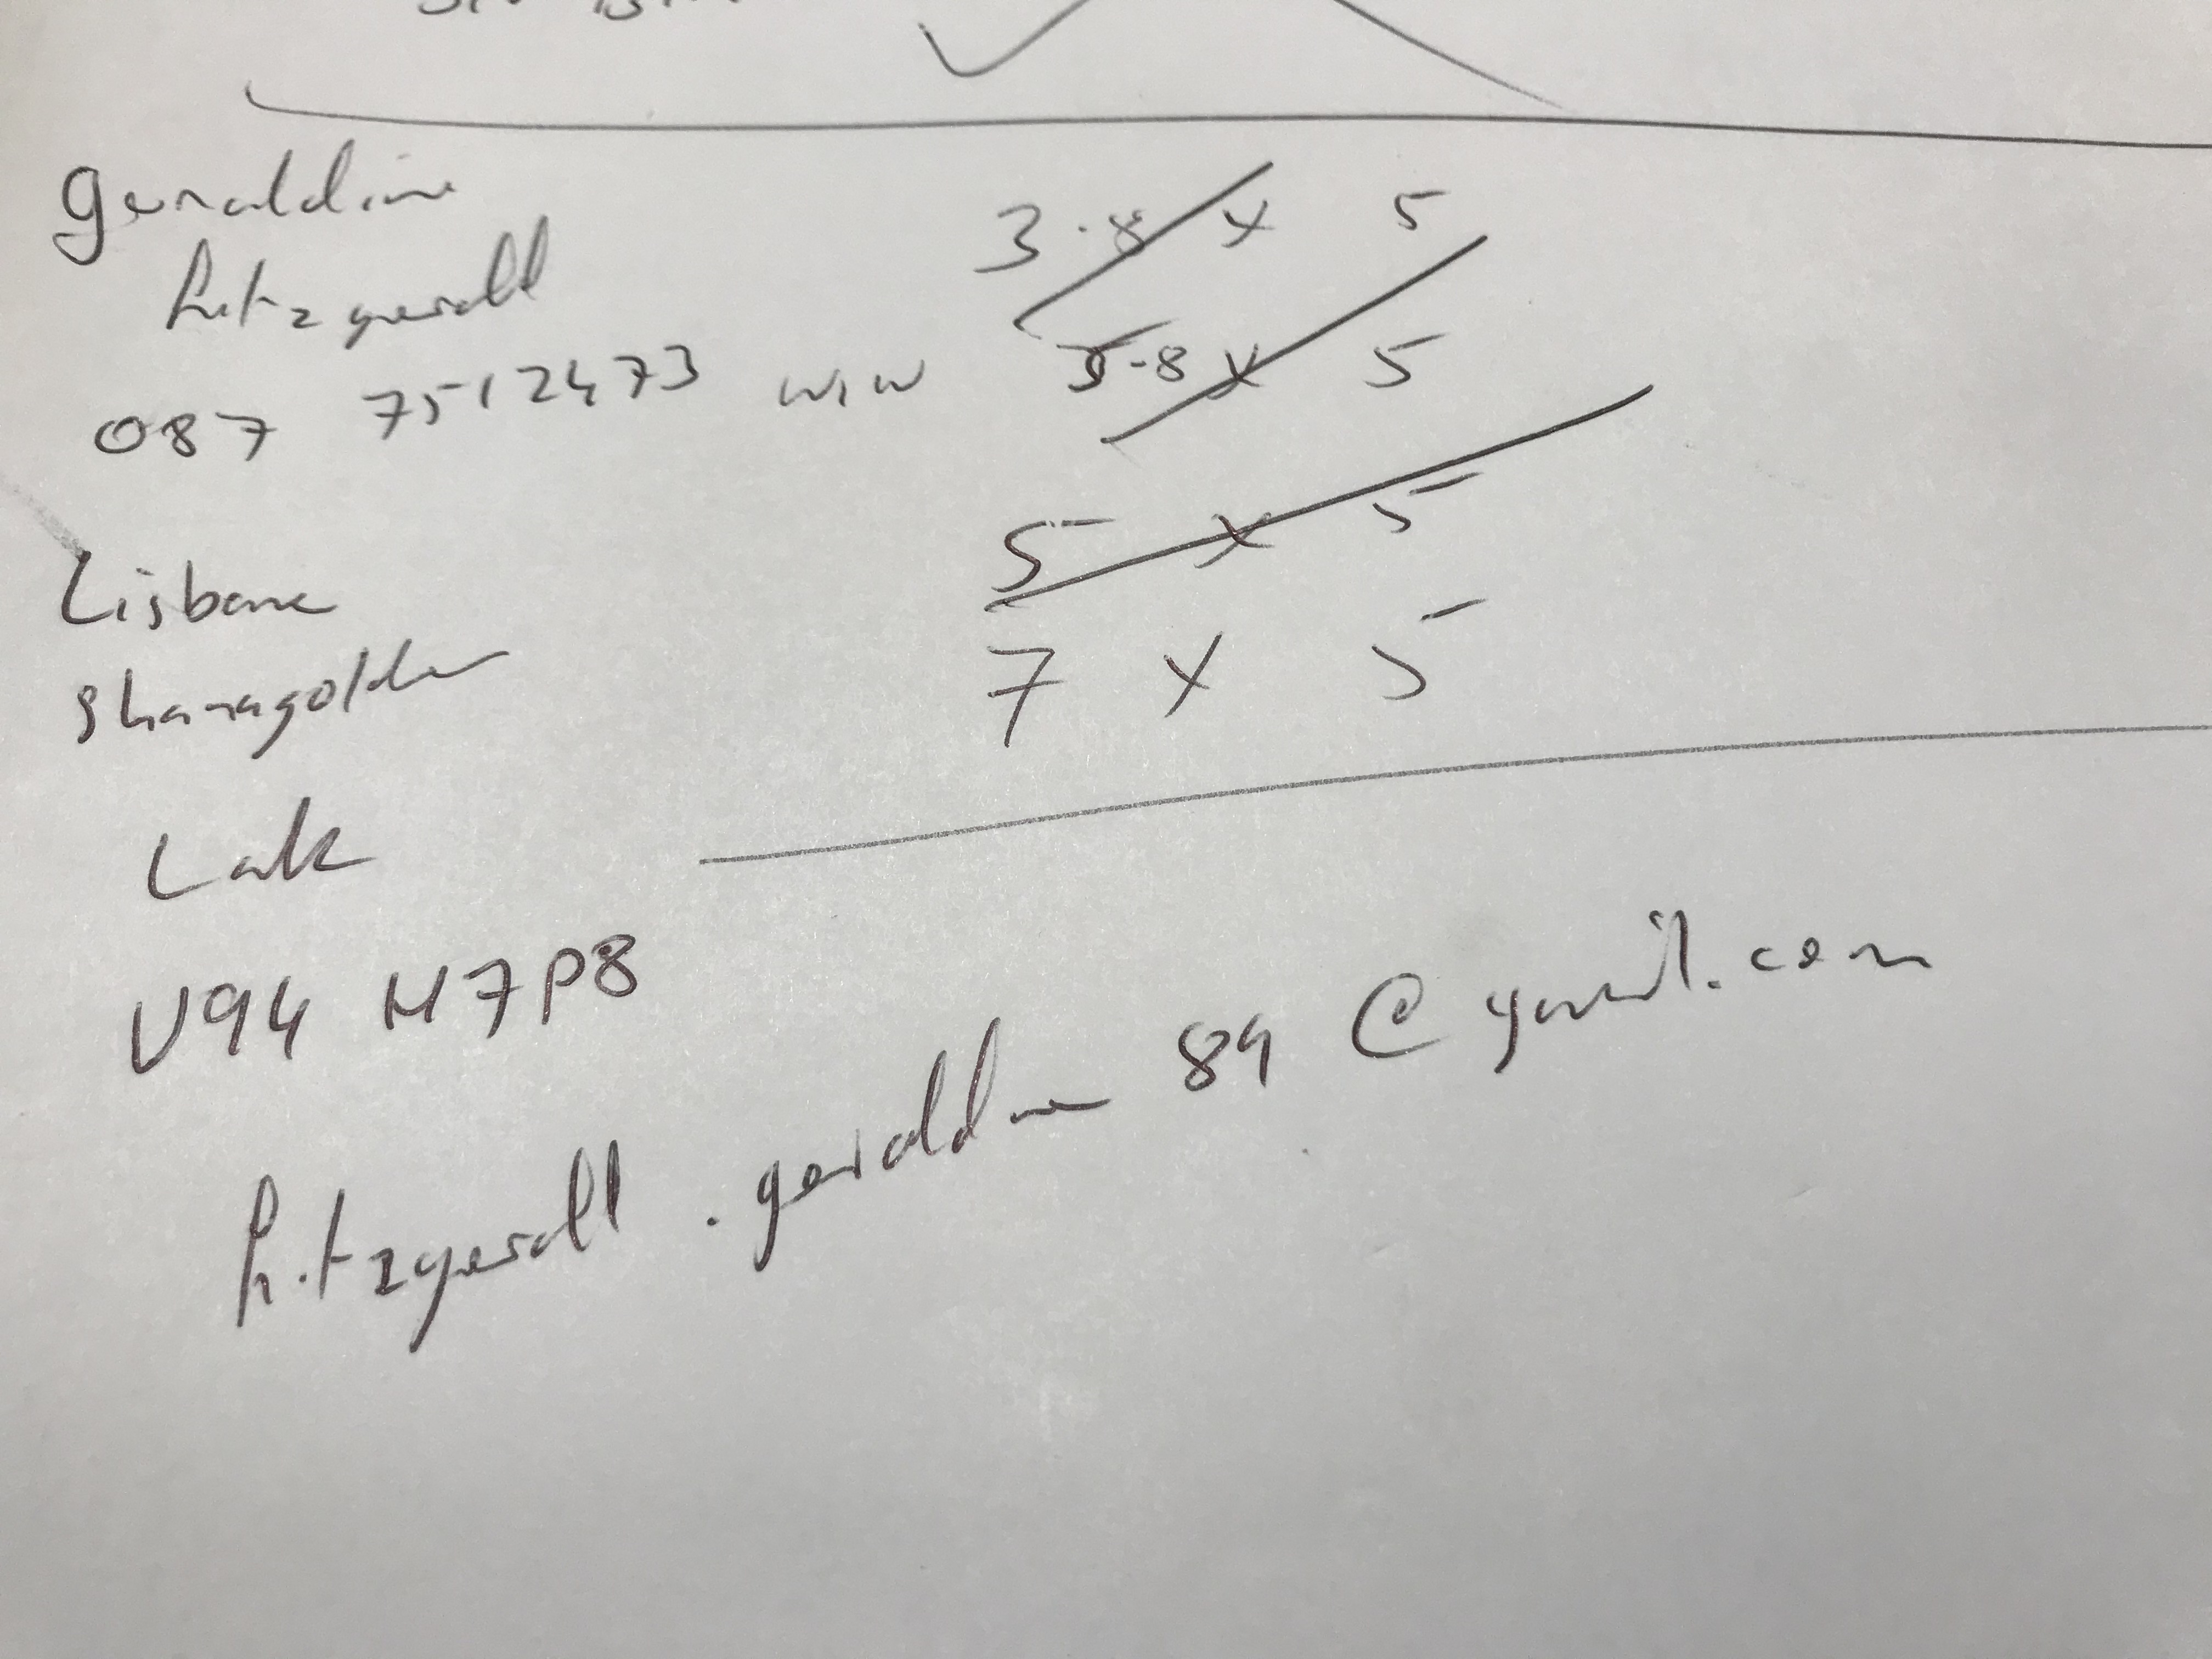 Geraldine
fitzgerald
087 7512473 WIN
3.8 x 5
3.8 x 5
5 x 5
7 x 5
Lisbane
Shanagolden
V94 H7P8
fitzgerald.geraldine89@gmail.com